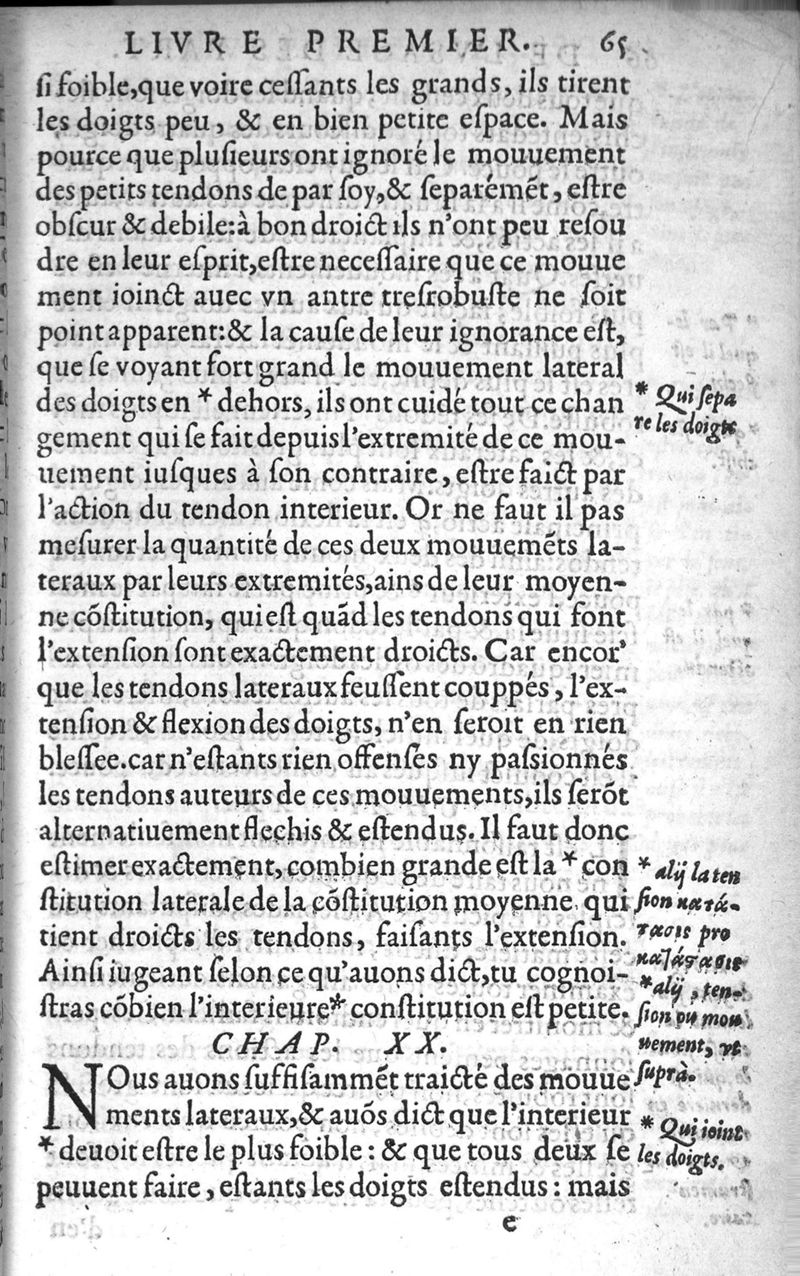 LIVRE PREMIER. 65
ſi foible,que voire ceſſants les grands, ils tirent
les doigts peu, & en bien petite eſpace. Mais
pource que pluſieurs ont ignoré le mouuement
des petits tendons de par ſoy,& ſeparémẽt, eſtre
obſcur & debile:à bon droict ils n'ont peu reſou
dre en leur eſprit,eſtre neceſſaire que ce mouue
ment ioinct auec vn antre treſrobuſte ne ſoit
point apparent:& la cauſe de leur ignorance eſt,
que ſe voyant fort grand le mouuement lateral
des doigts en * dehors, ils ont cuidé tout ce chan
gement qui ſe fait depuis l'extremité de ce mou-
uement iuſques à ſon contraire, eſtre faict par
l'action du tendon interieur. Or ne faut il pas
meſurer la quantité de ces deux mouuemẽts la-
teraux par leurs extremités,ains de leur moyen-
ne cõſtitution, qui eſt quãd les tendons qui font
l'extenſion ſont exactement droicts. Car encor'
que les tendons lateraux feuſſent couppés, l'ex-
tenſion & flexion des doigts, n'en ſeroit en rien
bleſſee.car n'eſtants rien offenſés ny paſsionnés
les tendons auteurs de ces mouuements,ils ſerõt
alternatiuement flechis & eſtendus. Il faut donc
eſtimer exactement, combien grande eſt la * con
ſtitution laterale de la cõſtitution moyenne qui
tient droicts les tendons, faiſants l'extenſion.
Ainſi iugeant ſelon ce qu'auons dict,tu cognoi-
ſtras cõbien l'interieure* conſtitution eſt petite.
CHAP. XX.
NOus auons ſuffiſammẽt traicté des mouue
ments lateraux,& auõs dict que l'interieur
* deuoit eſtre le plus foible : & que tous deux ſe
peuuent faire, eſtants les doigts eſtendus : mais
e
* Qui ſepa
re les doigts
* alij la ten
ſion κατά-
τασις pro
κατάστασις
*alij, ten-
ſion ou mou
uement, vt
ſuprà.
* Qui ioint
les doigts.